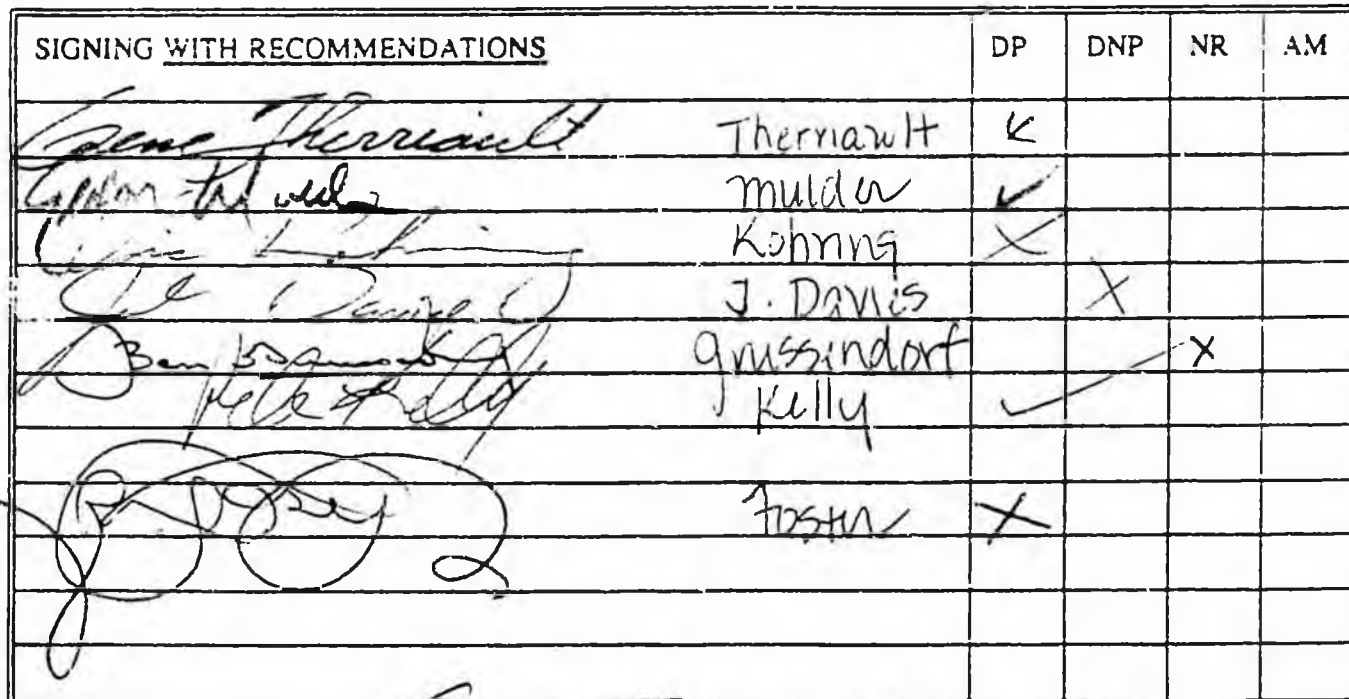 SIGNING WITH RECOMMENDATIONS DP DNP NR AM
Gene Therriault Therriault ✓
Mulder ✓
Kohring X
J. Davis X
Grussendorf X
Pete Kelly Kelly ✓
Foster X